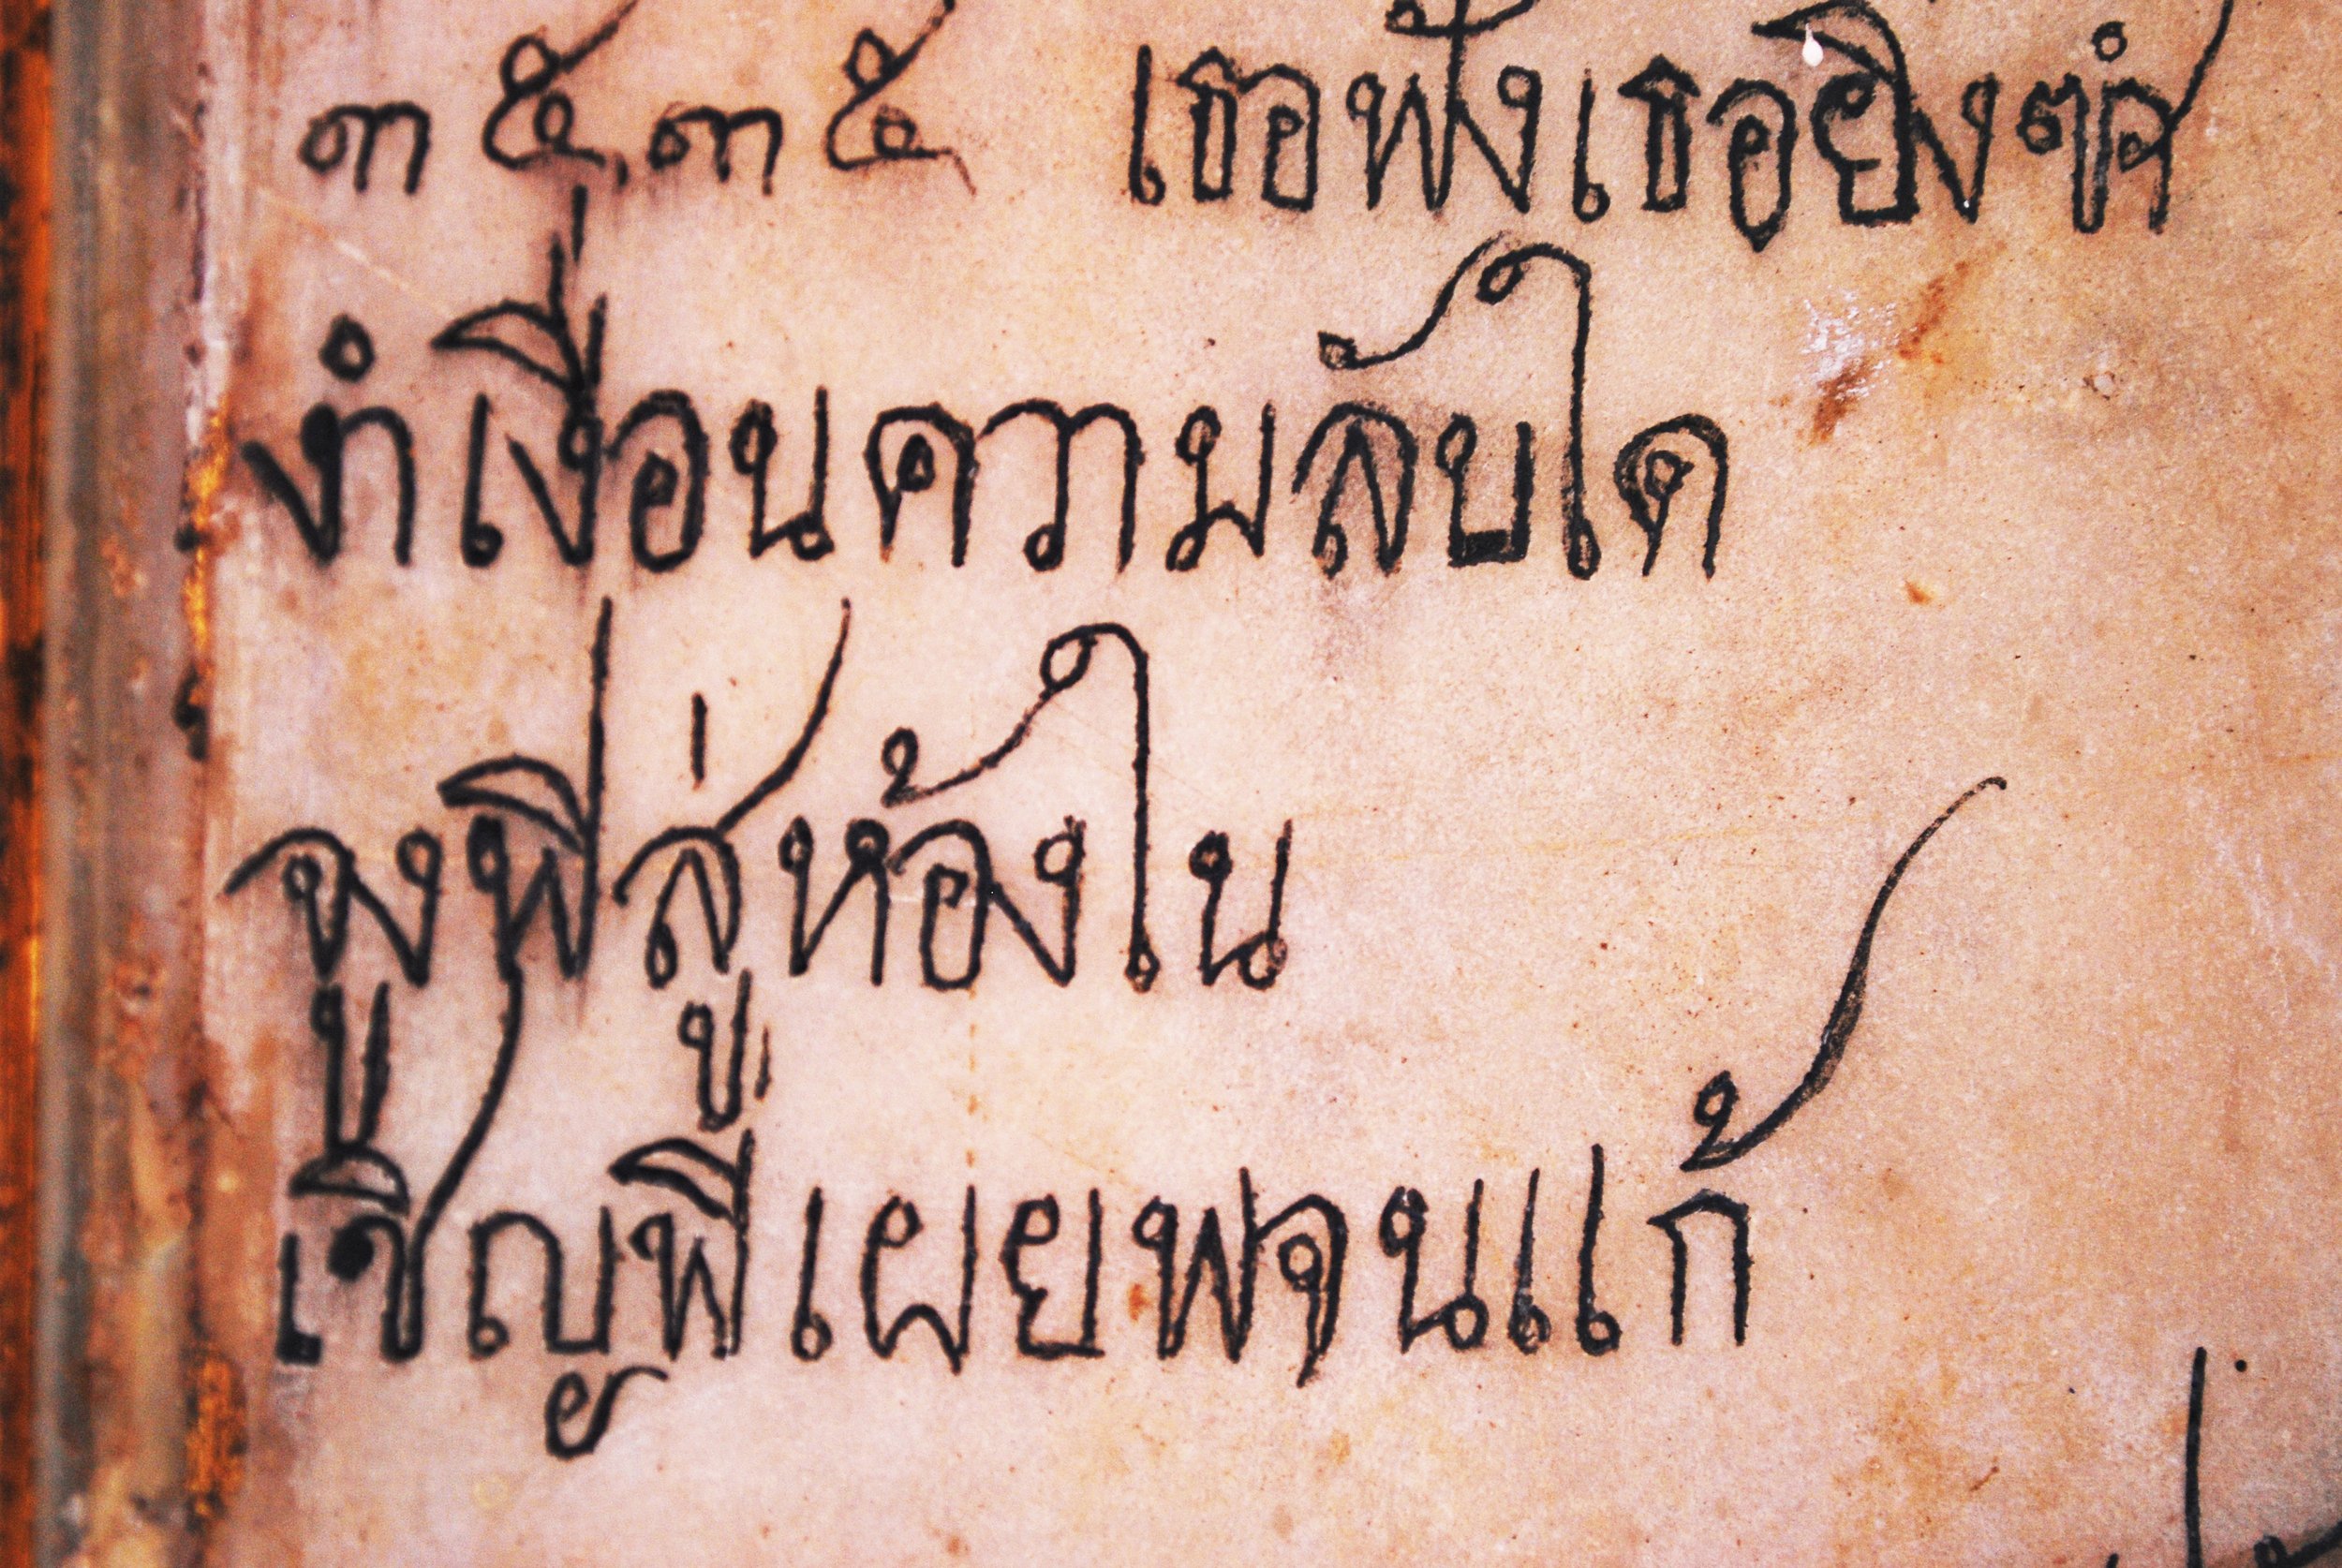 ๓๕,๓๕ เธอฟังเธอยิง
งำเงื่อนความลับใด
จูงพี่สู่ห้องใน
เชิญพี่เผยพจนแก้